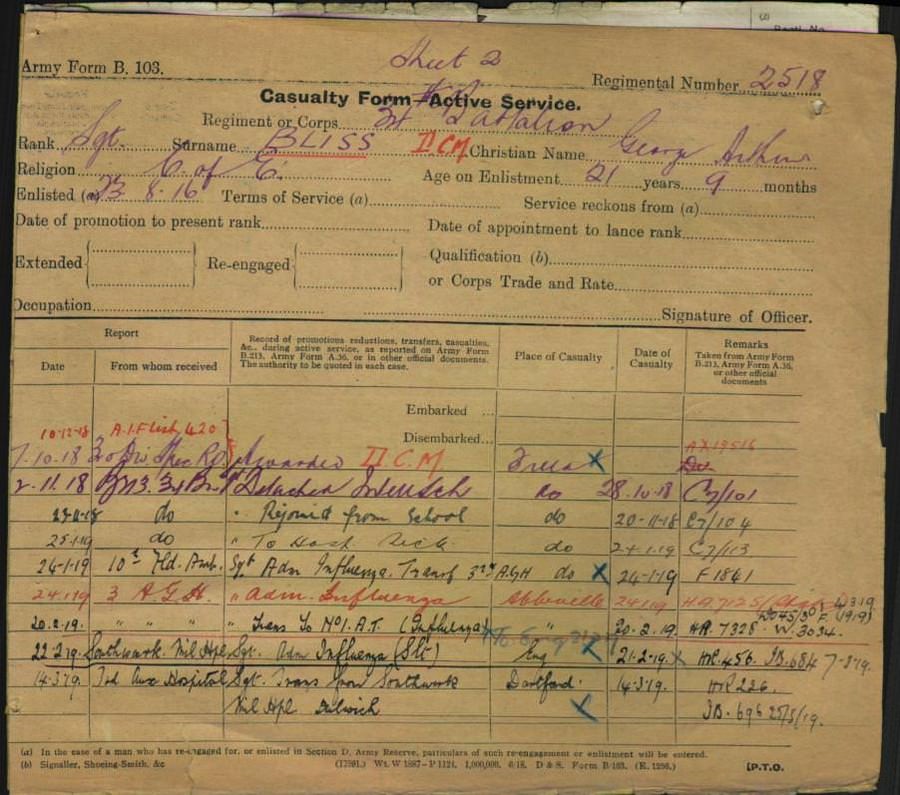 Sheet 2
Army Form B. 103.
Regimental Number 2518
Casualty Form—Active Service.
Regiment or Corps Battalion
Rank Sgt. Surname BLISS DCM Christian Name George Arthur
Religion C. of E. Age on Enlistment 21 years 9 months
Enlisted (a) 23 8.16 Terms of Service (a) Service reckons from (a)
Date of promotion to present rank Date of appointment to lance rank
Extended Re-engaged Qualification (b)
or Corps Trade and Rate
Occupation Signature of Officer.
Report
Date From whom received
Record of promotions reductions, transfers, casualties, &c., during active service, as reported on Army Form B.213, Army Form A.36, or in other official documents. The authority to be quoted in each case.
Place of Casualty
Date of Casualty
Remarks
Taken from Army Form B.213, Army Form A.36, or other official documents
Embarked
Disembarked
10-12-18 A.I.F List 420
7.10.18 Awarded DCM AX19516
2.11.18 Detached do 28.10.18 C7/101
23-11-18 do " Rejoined from School do 20-11-18 C7/104
25.1.19 do " To Hosp Sick. do 24.1.19 C7/113
24-1-19 10th Fld. Amb. Sgt Adm Influenza. Transf 3rd AGH do 24-1-19 F1841
24.1.19 3 AGH. " adm. Influenza Abbeville 24.1.19
20.2.19. " " " " Trans To No1. A.T. (Influenza) " 20.2.19. HR.7328 W.3034.
22.2.19. Southwark Mil Hpl. Sgt. Adm Influenza (Slt) Eng 21.2.19. HR.456. IB.684 7-3-19.
14.3.19. 3rd Aux Hospital Sgt. Trans from Southwark Dartford. 14.3.19. HR226.
Mil Hpl Dulwich IB. 696 25/3/19.
(a) In the case of a man who has re-engaged for, or enlisted in Section D, Army Reserve, particulars of such re-engagement or enlistment will be entered.
(b) Signaller, Shoeing-Smith, &c (17591.) Wt. W 1887—P 1124. 1,000,000. 6/18. D & S. Form B.103. (E. 1256.) [P.T.O.